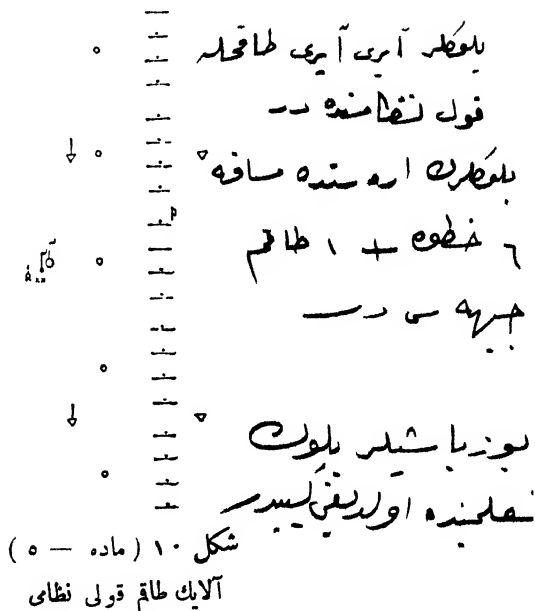 بلوكلر آيرى آيرى طاقملہ
قول نظامنده در
بلوكلرك اره سنده مسافه
٦ خطوه + ١ طاقم
جبهه سى در
يوزباشيلر بلوك
اولديغى كيبدر
شكل ١٠ ( ماده — ٥ )
آلايك طاقم قولى نظامى